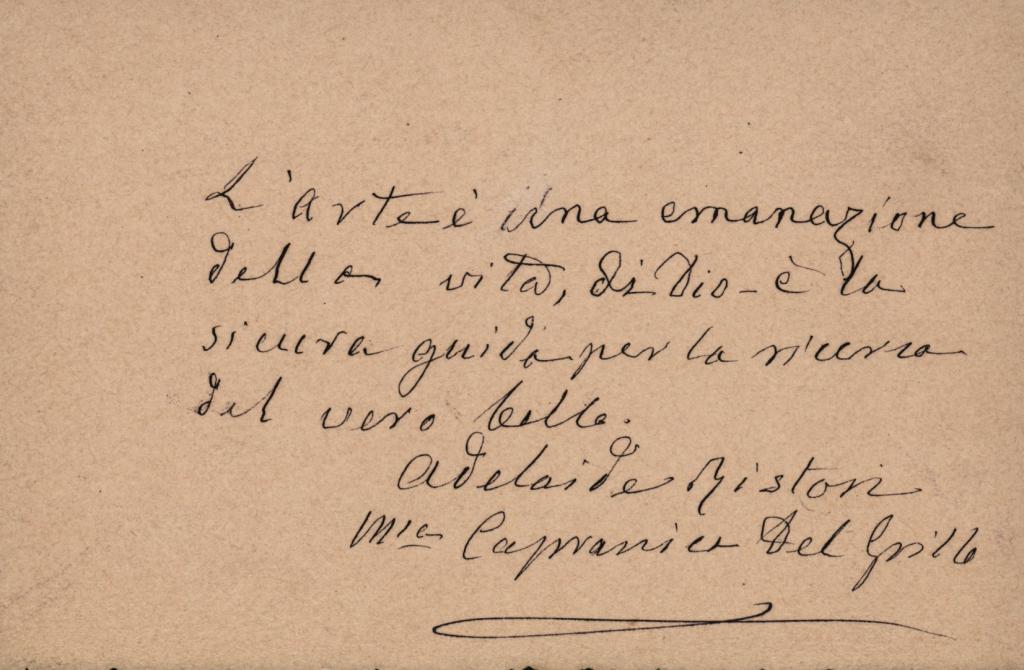 L'arte è una emanazione
della vita, di Dio - è la
sicura guida per la ricerca
del vero bello.
Adelaide Ristori
Msa Capranica Del Grillo